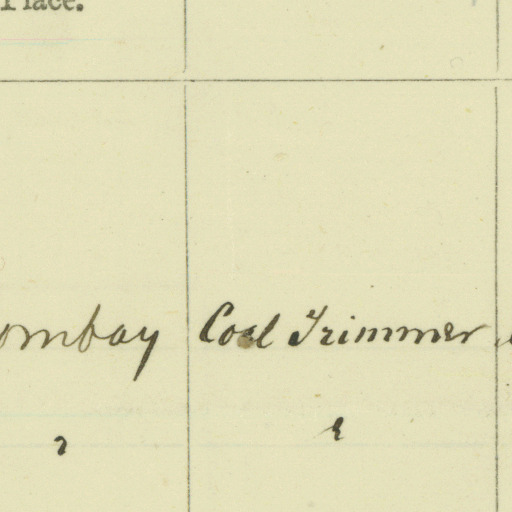 Place.
ombay Coal Trimmer